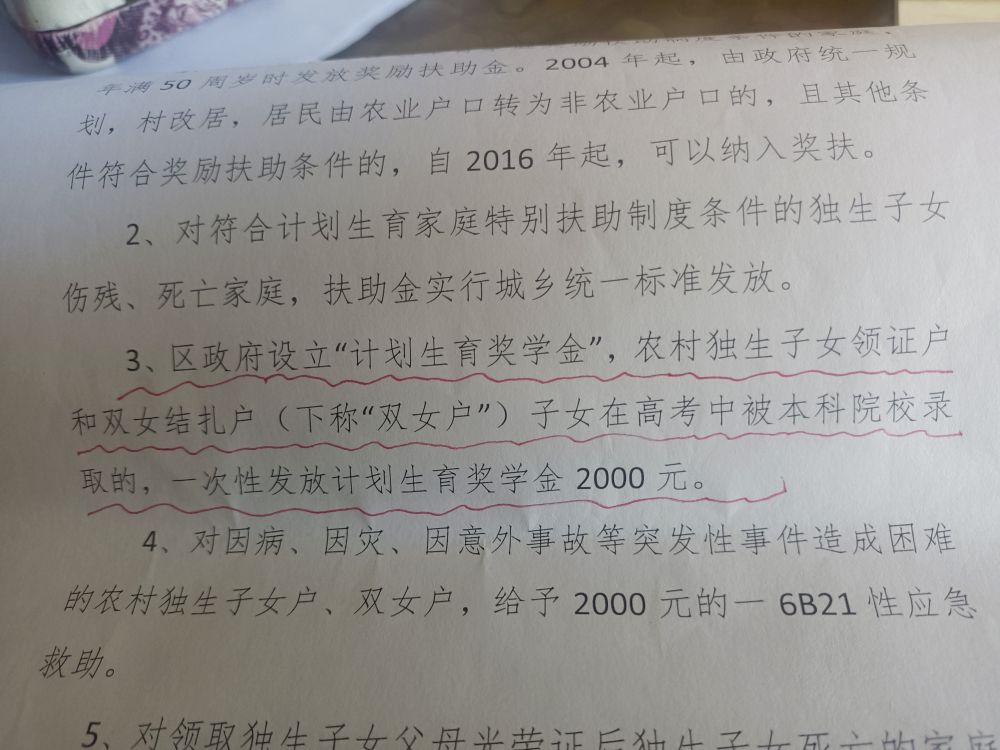 年满 50 周岁时发放奖励扶助金。2004 年起，由政府统一规
划，村改居，居民由农业户口转为非农业户口的，且其他条
件符合奖励扶助条件的，自 2016 年起，可以纳入奖扶。
2、对符合计划生育家庭特别扶助制度条件的独生子女
伤残、死亡家庭，扶助金实行城乡统一标准发放。
3、区政府设立“计划生育奖学金”，农村独生子女领证户
和双女结扎户（下称“双女户”）子女在高考中被本科院校录
取的，一次性发放计划生育奖学金 2000 元。
4、对因病、因灾、因意外事故等突发性事件造成困难
的农村独生子女户、双女户，给予 2000 元的一 6B21 性应急
救助。
5、对领取独生子女父母光荣证后独生子女死亡的家庭